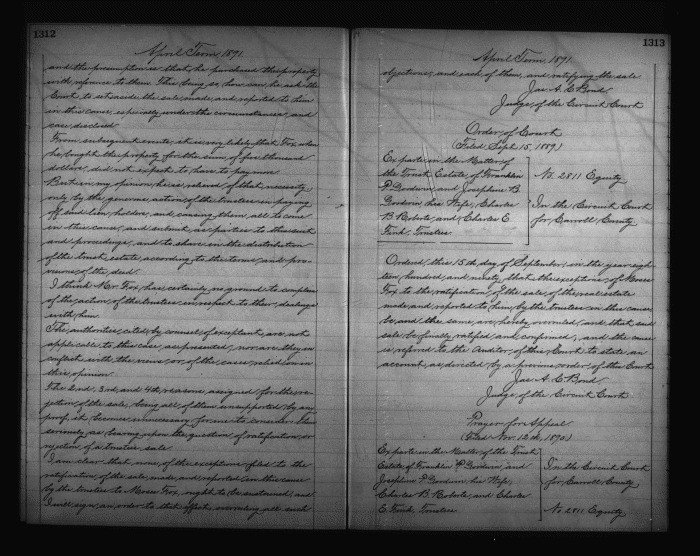 1312
April Term, 1891.
and the presumption is that he purchased the property
with reference to them. This being so, how can he ask the
Court to set aside the sale made and reported to him
in this cause, especially under the circumstances, and
case disclosed.
From subsequent events, it is very likely that Fox when
he bought the property for the sum of five thousand
dollars, did not expect to have to pay more
But in my opinion he is relieved of that necessity
only by the generous action of the trustees in paying
off said lien holders, and causing them all to come
in this cause, and submit as parties to this suit
and proceedings, and to share in the distribution
of the trust estate according to the terms and pro-
visions of the deed.
I think Mr. Fox has certainly no ground to complain
of the action of the trustees in respect to their dealings
with him.
The authorities cited by counsel of exceptant are not
applicable to this case, as presented, nor are they in
conflict with the views, or of the cases relied on in
this opinion.
The 2nd, 3rd and 4th reasons assigned for the re-
jection of the sale, being all of them unsupported by any
proof, it becomes unnecessary for me to consider them
seriously as bearing upon the question of ratification or
rejection of a trustees sale.
I am clear that none of the exceptions filed to the
ratification of the sale made and reported in this cause
by the trustees to Fox, ought to be sustained, and
I will sign an order to that effect overruling all such
1313
April Term, 1891.
objections, and each of them, and ratifying the sale
Jas. A. C. Bond
Judge of the Circuit Court
Order of Court
(Filed Sept. 15, 1889.)
Ex parte in the Matter of
the Trust Estate of Franklin
P. Goodwin and Josephine B
Goodwin his Wife, Charles
B. Roberts and Charles E
Fink, Trustees.
No. 2811 Equity
In the Circuit Court
for Carroll County
Ordered, this 15th day of September, in the year eigh-
teen hundred, and ninety that the exceptions of
Fox to the ratification of the sale of the real estate
made and reported to him by the trustees in this cause,
be, and the same are hereby overruled, and that said
sale be finally ratified and confirmed, and the cause
is referred to the Auditor of this Court to state an
account, as directed by a previous order of this Court
Jas. A. C. Bond
Judge of the Circuit Court
Prayer for Appeal
(Filed Nov. 12th, 1890.)
Ex parte in the Matter of the Trust
Estate of Franklin P. Goodwin, and
Josephine P. Goodwin, his Wife,
Charles B. Roberts, and Charles
E. Fink Trustees
In the Circuit Court
for Carroll County
No. 2811 Equity